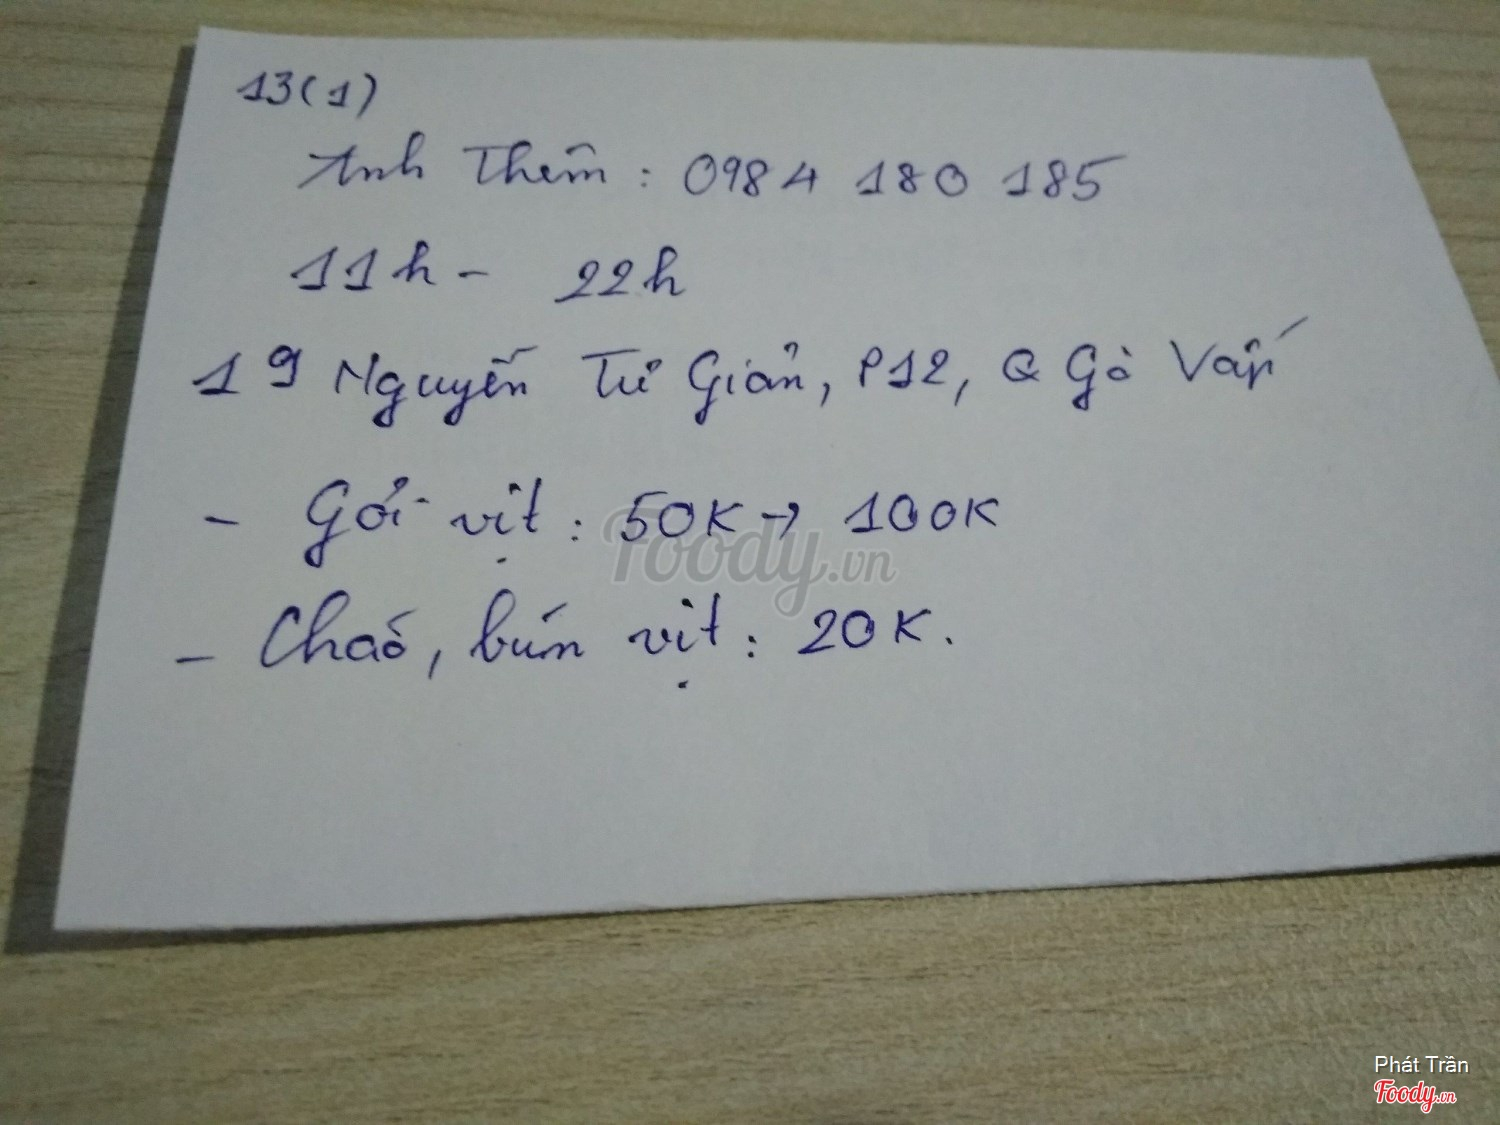 13(1)
Anh Thêm: 0984 180 185
11h - 22h
19 Nguyễn Tư Giản, P12, Q Gò Vấp
- Gỏi vịt: 50K → 100K
- Cháo, bún vịt: 20K.
Foody.vn
Phát Trần
Foody.vn